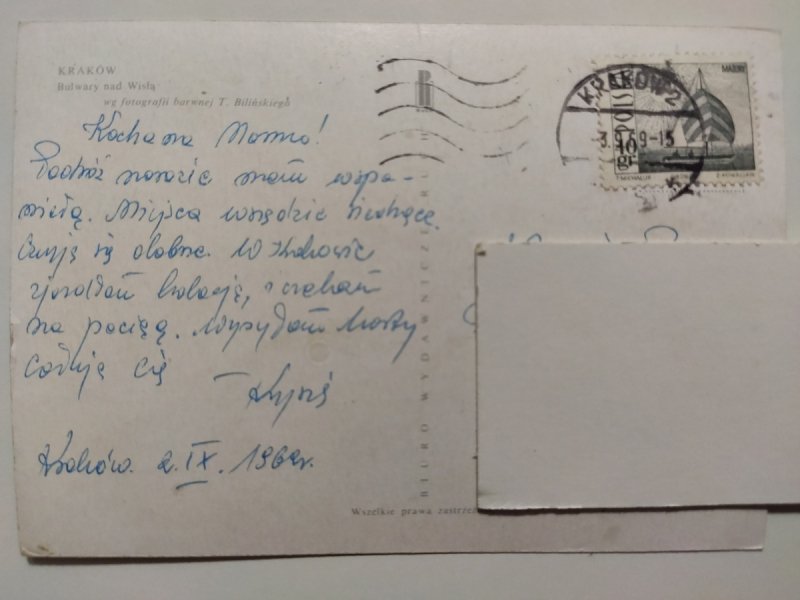 KRAKÓW
Bulwary nad Wisłą
wg fotografii barwnej T. Bilińskiego
Kochana Mamo!
Podróż narazie mam wspa-
niałą. Miejsca wszędzie siedzące.
Czuję się dobrze. W Krakowie
zjadłam kolację, i czekam
na pociąg. Wysyłam kartkę
całuję Cię
Kraków. 2.IX.1969r.
BIURO WYDAWNICZE RUCH
Wszelkie prawa
KRAKÓW 2
3.9.69-15
MAZURY
POLSKA
10 gr